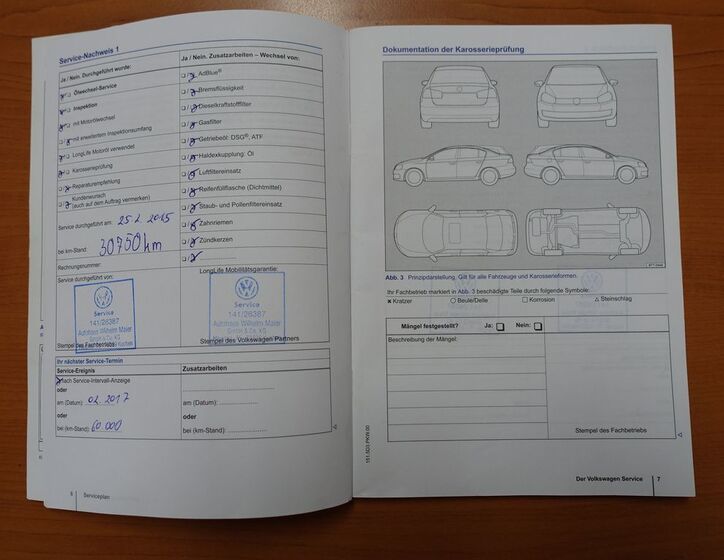 Service-Nachweis 1
Ja / Nein. Durchgeführt wurde:
Ölwechsel-Service
Inspektion
mit Motorölwechsel
mit erweitertem Inspektionsumfang
LongLife Motoröl verwendet
Karosserieprüfung
Reparaturempfehlung
Kundenwunsch
(auch auf dem Auftrag vermerken)
Service durchgeführt am: 25.2.2015
bei km-Stand: 30750 km
Rechnungsnummer:
Service durchgeführt von:
Service
141/26387
Autohaus Wilhelm Maier
GmbH & Co. KG
Stempel des Fachbetriebs
Ja / Nein. Zusatzarbeiten – Wechsel von:
AdBlue®
Bremsflüssigkeit
Dieselkraftstofffilter
Gasfilter
Getriebeöl: DSG®, ATF
Haldexkupplung: Öl
Luftfiltereinsatz
Reifenfüllflasche (Dichtmittel)
Staub- und Pollenfiltereinsatz
Zahnriemen
Zündkerzen
LongLife Mobilitätsgarantie:
Service
141/26387
Autohaus Wilhelm Maier
GmbH & Co. KG
Stempel des Volkswagen Partners
Ihr nächster Service-Termin
Service-Ereignis
nach Service-Intervall-Anzeige
oder
am (Datum): 02.2017
oder
bei (km-Stand): 60.000
Zusatzarbeiten
oder
am (Datum):
oder
bei (km-Stand):
6 Serviceplan
Dokumentation der Karosserieprüfung
Abb. 3 Prinzipdarstellung. Gilt für alle Fahrzeuge und Karosserieformen.
Ihr Fachbetrieb markiert in Abb. 3 beschädigte Teile durch folgende Symbole:
× Kratzer ○ Beule/Delle □ Korrosion △ Steinschlag
Mängel festgestellt? Ja: Nein:
Beschreibung der Mängel:
Stempel des Fachbetriebs
Der Volkswagen Service 7